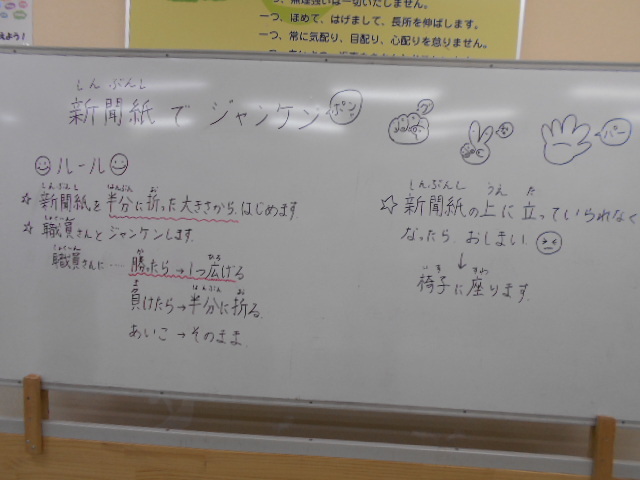 一つ、無理強いは一切いたしません。
一つ、ほめて、はげまして、長所を伸ばします。
一つ、常に気配り、目配り、心配りを怠りません。
えよう！
しんぶんし
新聞紙でジャンケン ポン
グ
チョキ
パー
ルール
しんぶんし はんぶん お
☆ 新聞紙を半分に折った大きさから、はじめます。
しょくいん
☆ 職員さんとジャンケンします。
しょくいん か ひろ
職員さんに…… 勝ったら→1つ広げる
ま はんぶん お
負けたら→半分に折る。
あいこ→そのまま。
しんぶんし うえ た
☆ 新聞紙の上に立っていられなく
なったら、おしまい。
↓
いす すわ
椅子に座ります。